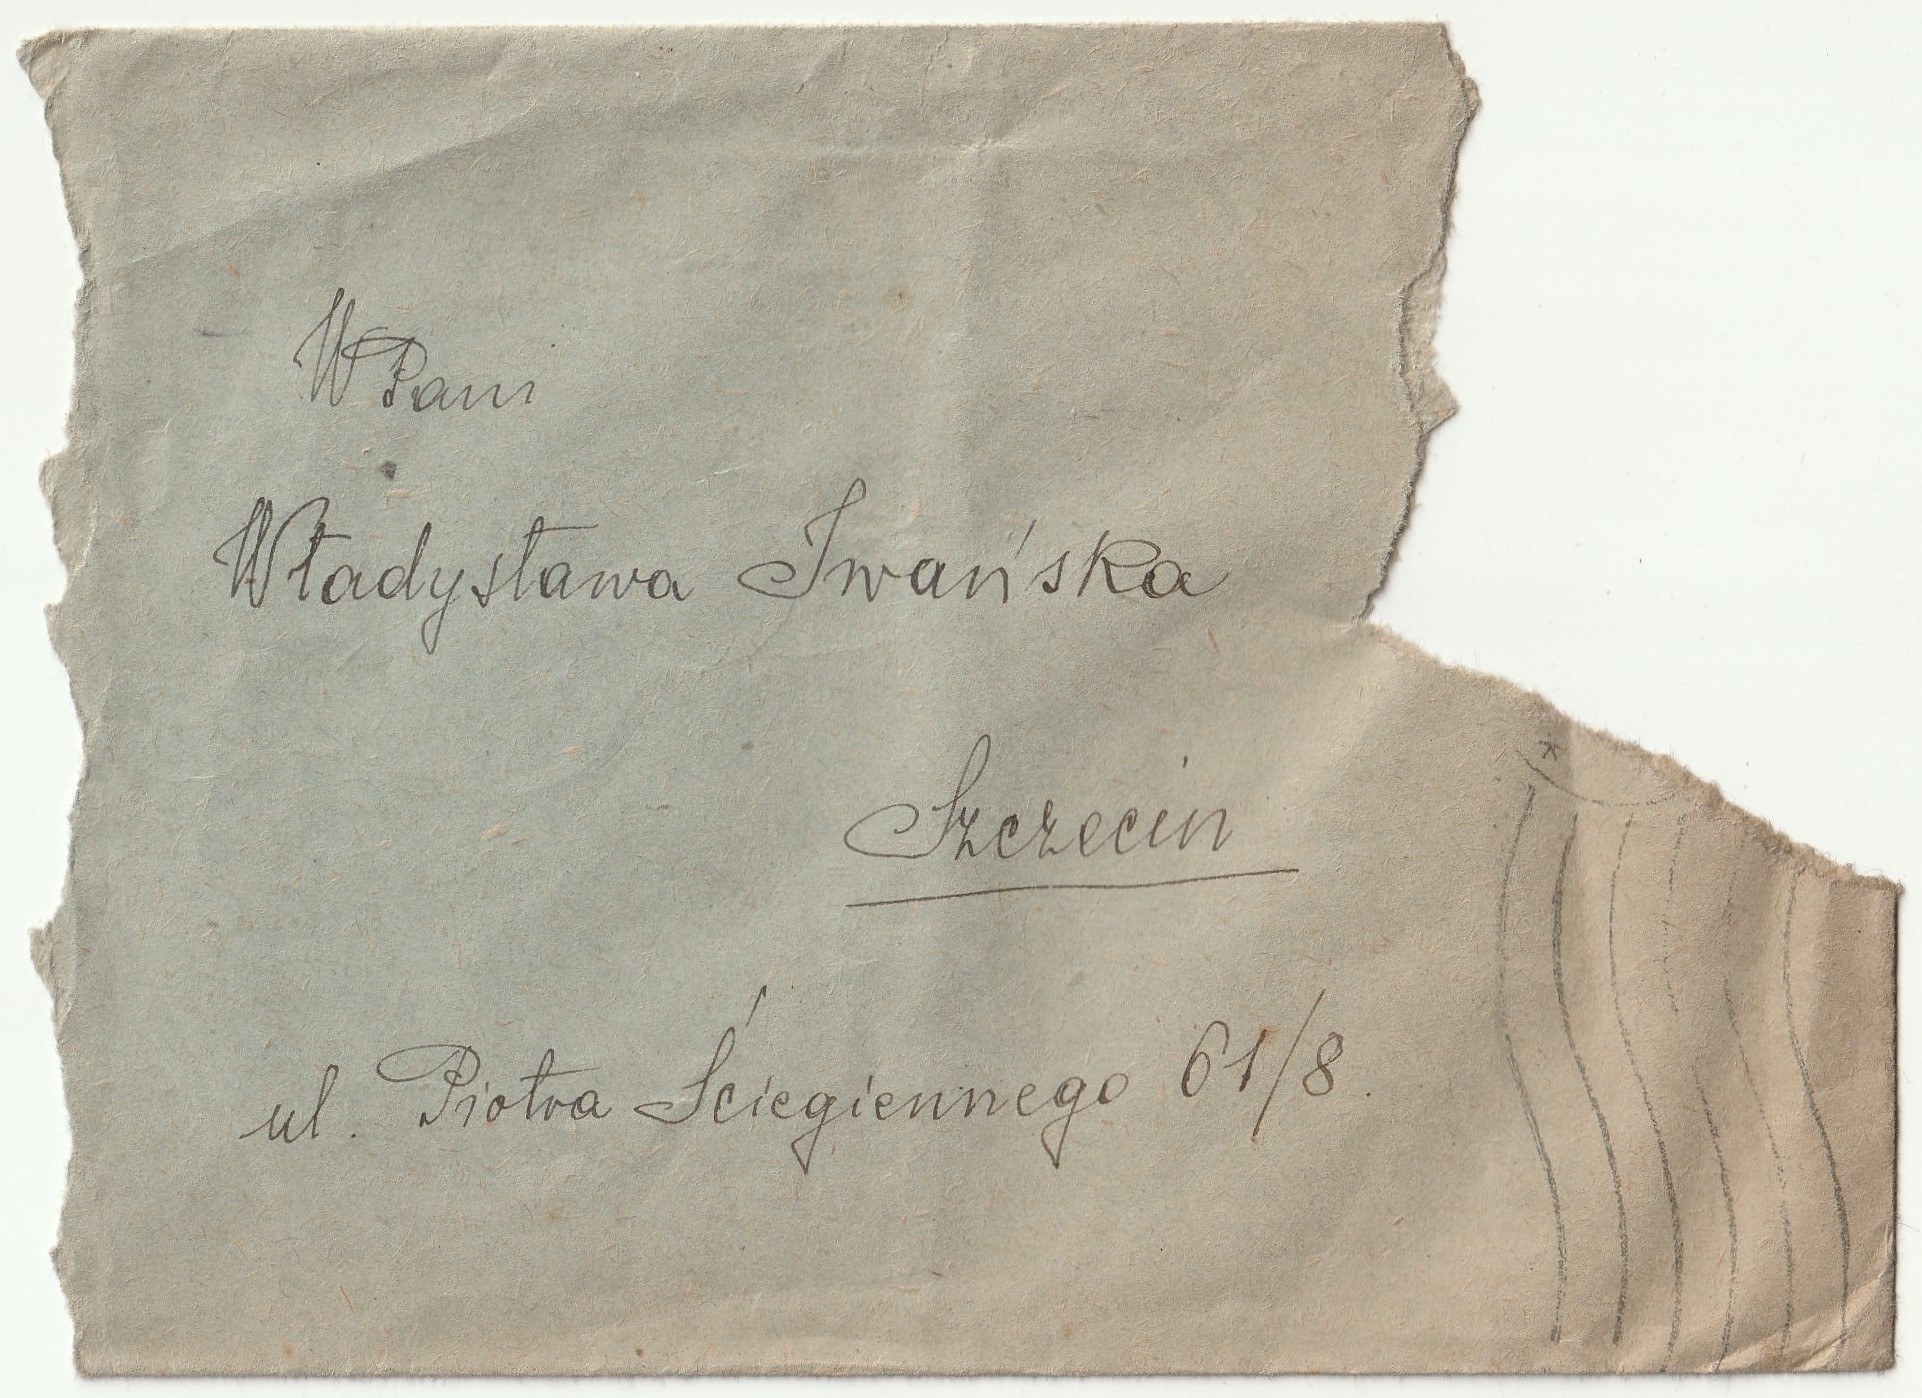 W Pani
Władysława Iwańska
Szczecin
ul. Piotra Ściegiennego 61/8.